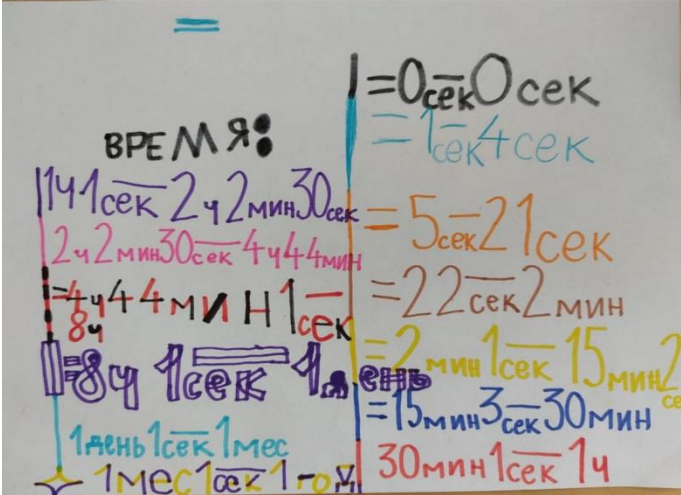 ВРЕМЯ:
1ч1сек—2ч2мин30сек
2ч2мин30сек—4ч44мин
=4ч44мин1сек—
8ч
=8ч 1сек—1день
1день1сек—1мес
1мес1сек—1год
=0сек—0сек
=1сек—4сек
=5сек—21сек
=22сек—2мин
=2мин1сек—15мин2
сек
=15мин3сек—30мин
30мин1сек—1ч